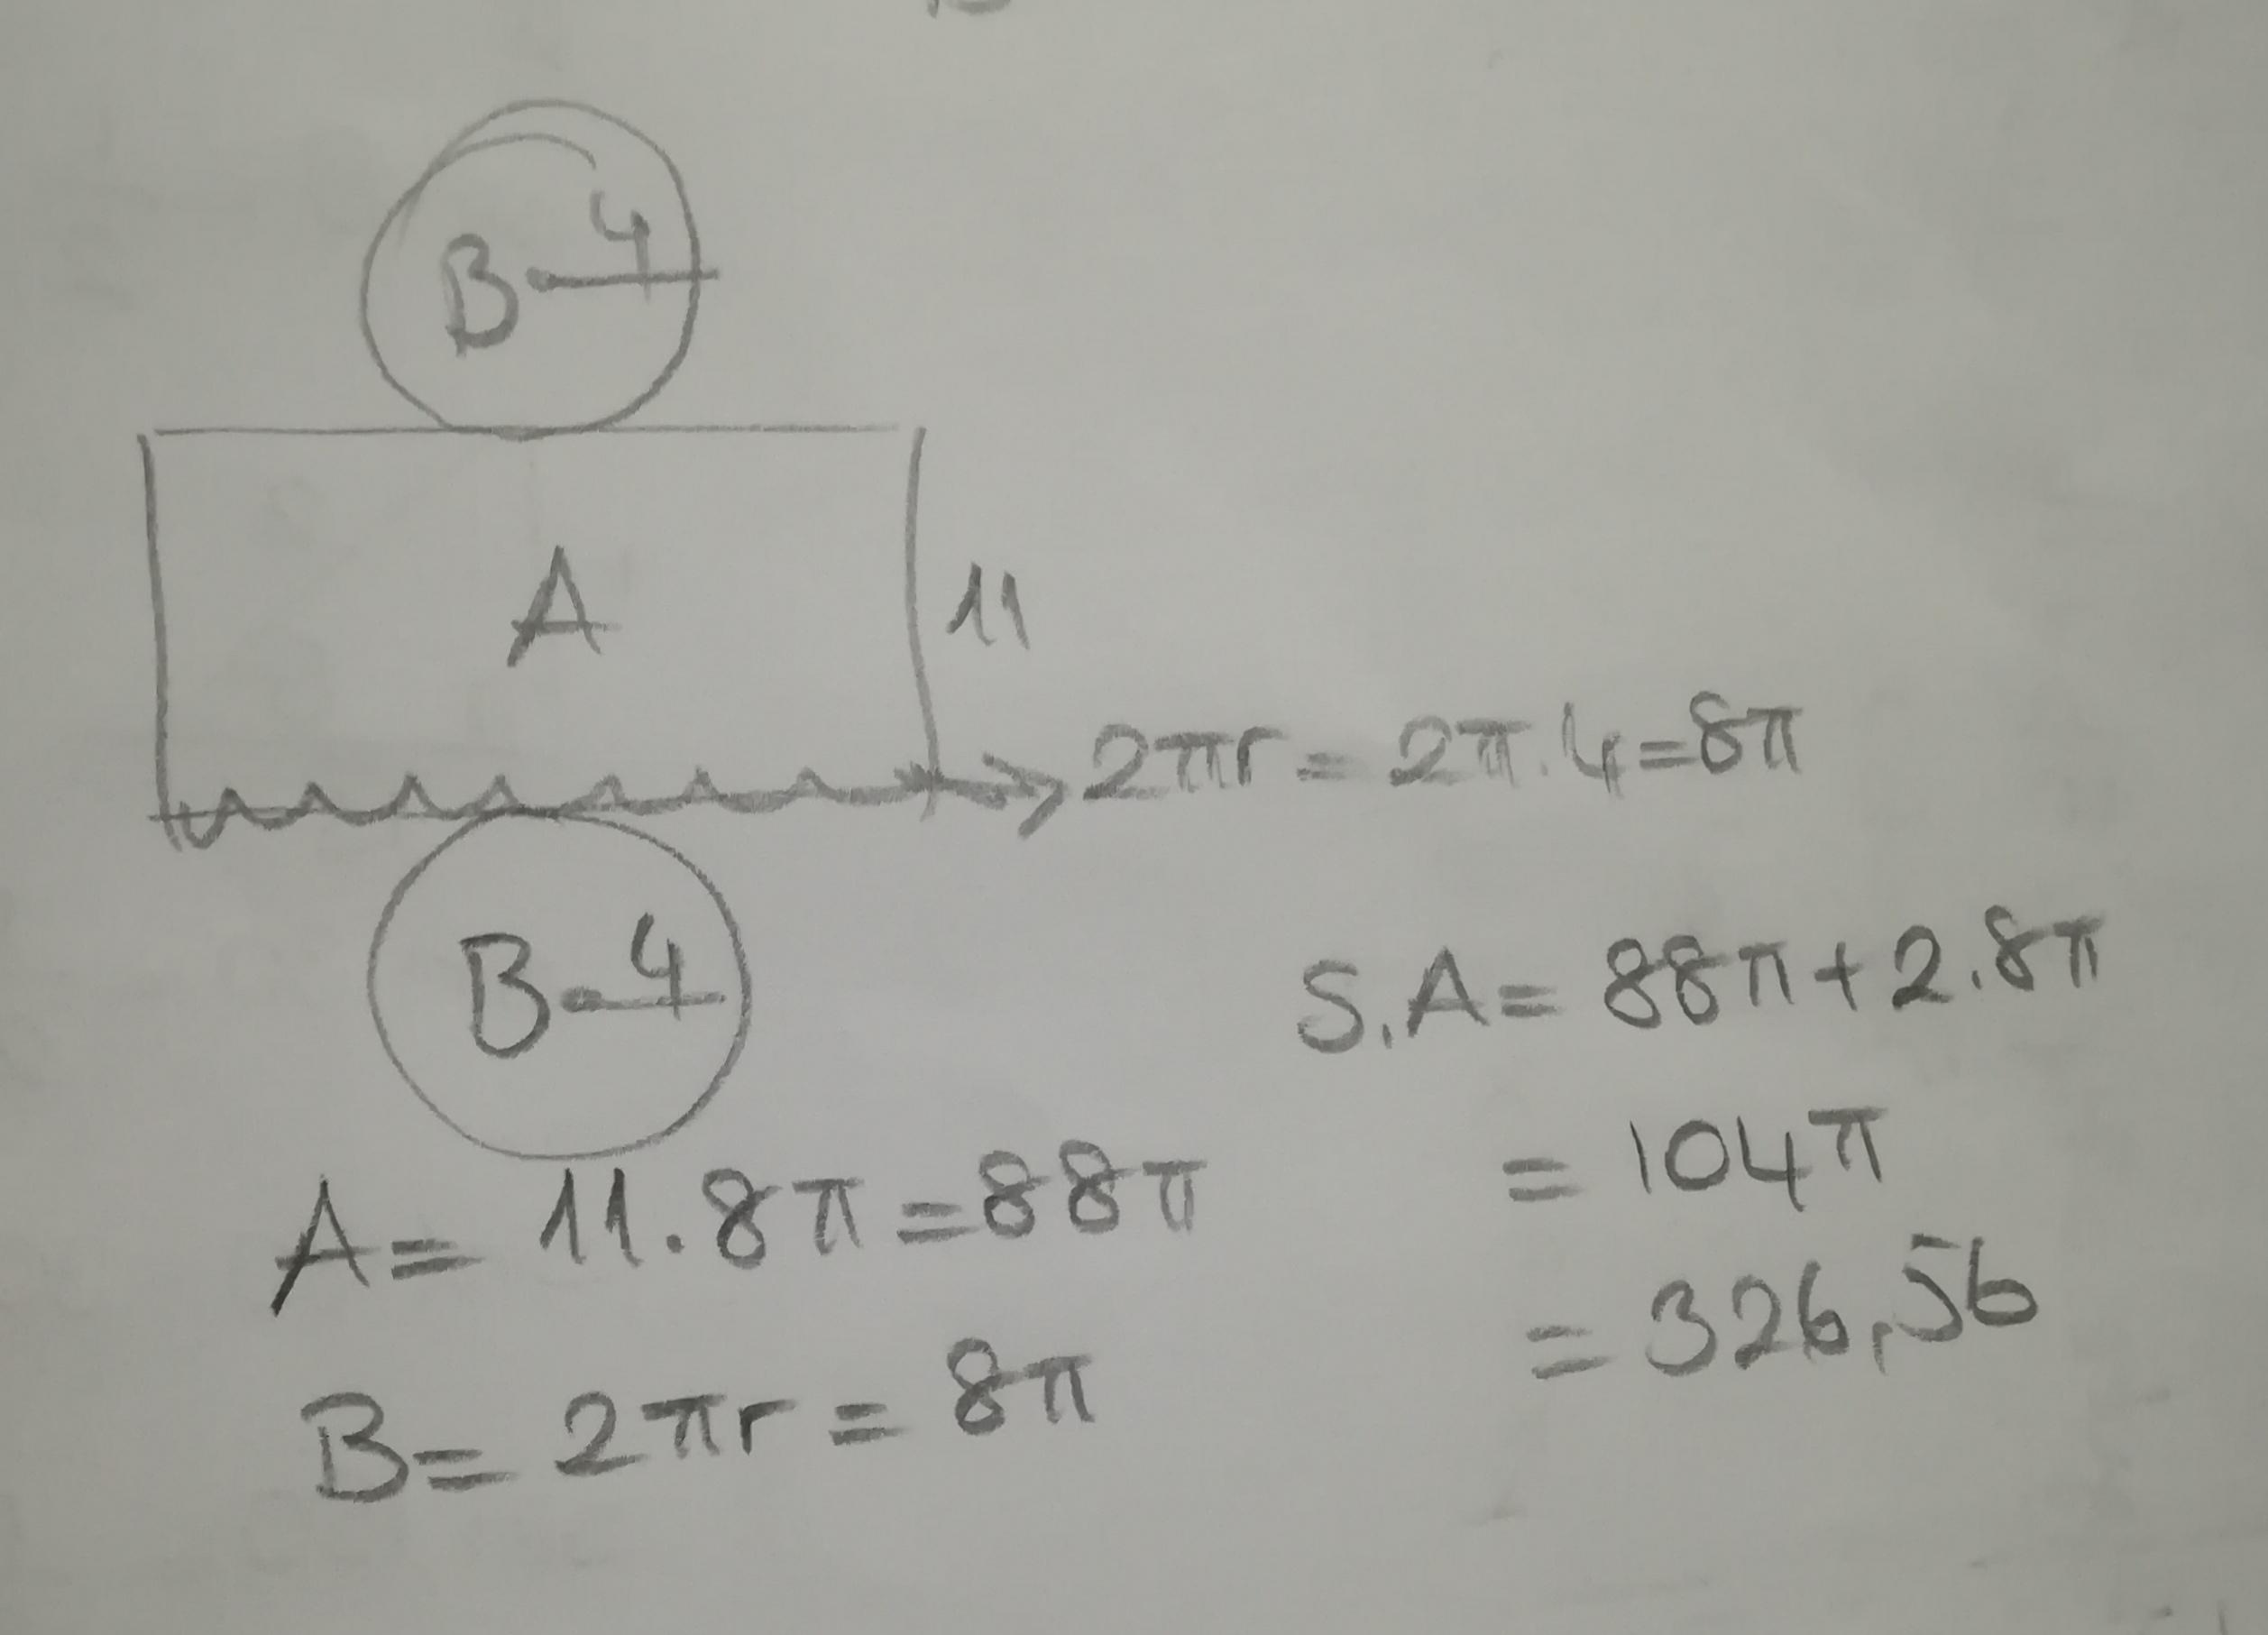 B 4
A
11
2πr = 2π.4=8π
B 4
S.A= 88π+2.8π
= 104π
= 326,56
A= 11.8π=88π
B= 2πr = 8π